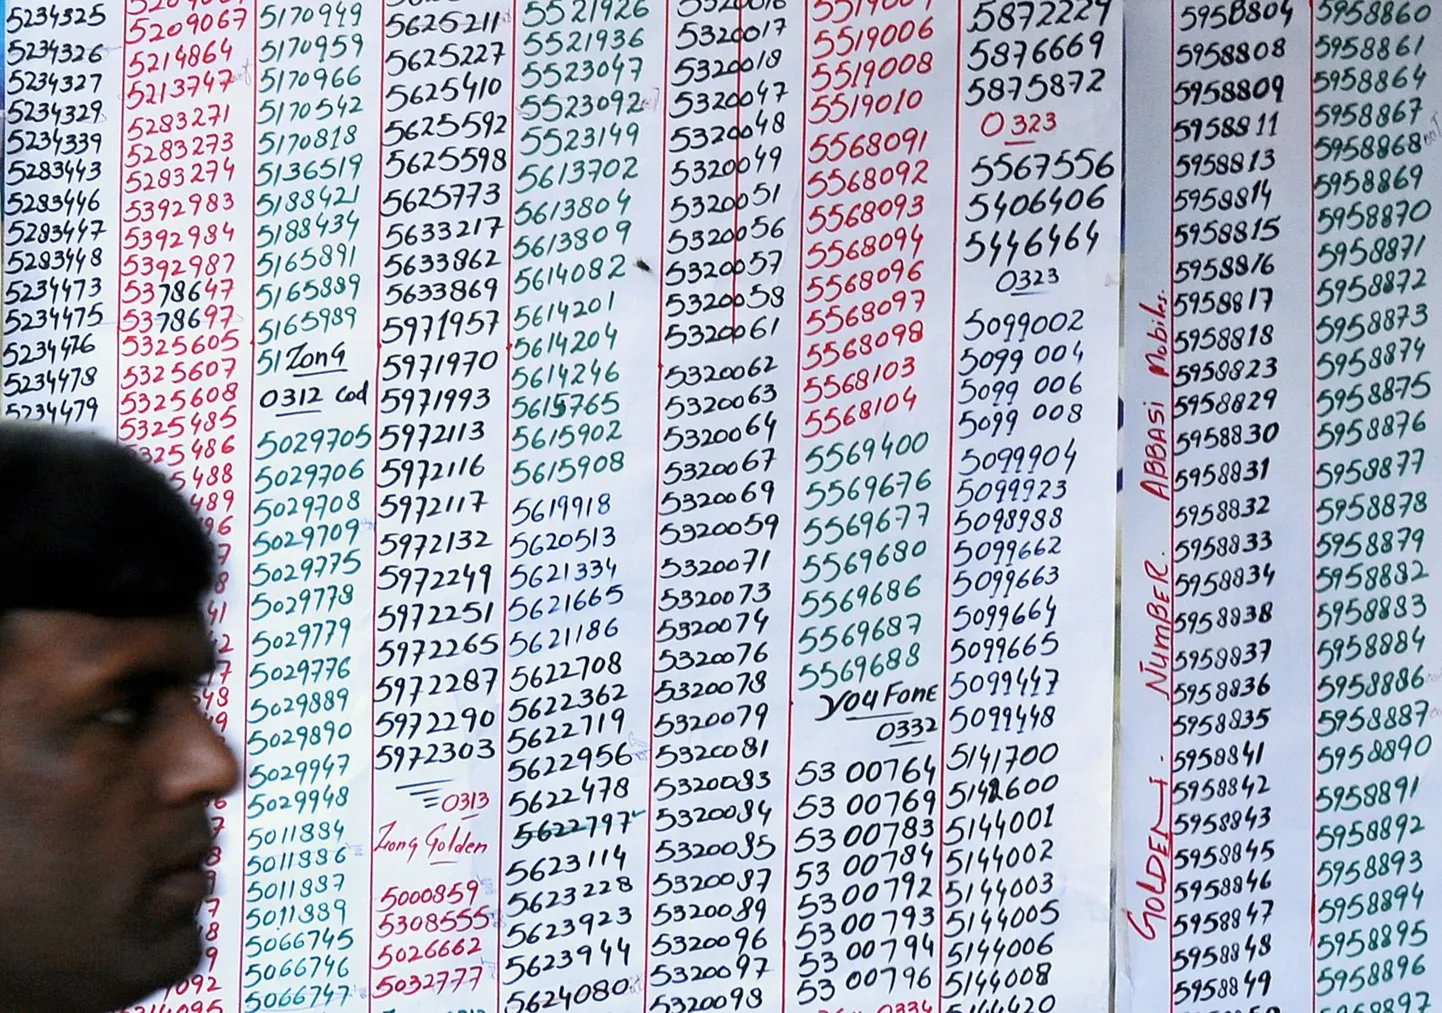 5234325
5234326
5234327
5234329
5234339
5283443
5283446
5283447
5283448
5234473
5234475
5234476
5234478
5234479
5209067
5214864
5213747
5283271
5283273
5283274
5392983
5392984
5392987
5378647
5378697
5325605
5325607
5325608
5325485
5170949
5170959
5170966
5170542
5170818
5136519
5188421
5188434
5165891
5165889
5165989
51 Zong
0312 Cod
5029705
5029706
5029708
5029709
5029775
5029778
5029779
5029776
5029889
5029890
5029947
5029948
5011884
5011886
5011887
5011889
5066745
5066746
5066747
5625211
5625227
5625410
5625592
5625598
5625773
5633217
5633862
5633869
5971957
5971970
5971993
5972113
5972116
5972117
5972132
5972249
5972251
5972265
5972287
5972290
5972303
0313
Zong Golden
5000859
5308555
5026662
5032777
5521926
5521936
5523047
5523092
5523149
5613702
5613804
5613809
5614082
5614201
5614204
5614246
5615765
5615902
5615908
5619918
5620513
5621334
5621665
5621186
5622708
5622362
5622719
5622956
5622478
5622797
5623114
5623228
5623923
5623944
5624080
5320017
5320018
5320047
5320048
5320049
5320051
5320056
5320057
5320058
5320061
5320062
5320063
5320064
5320067
5320069
5320059
5320071
5320073
5320074
5320076
5320078
5320079
5320081
5320083
5320084
5320085
5320087
5320089
5320096
5320097
5320098
5519006
5519008
5519010
5568091
5568092
5568093
5568094
5568096
5568097
5568098
5568103
5568104
5569400
5569676
5569677
5569680
5569686
5569687
5569688
YOU FONE
0332
53 00764
53 00769
53 00783
53 00784
53 00792
53 00793
53 00794
53 00796
5872229
5876669
5875872
0323
5567556
5406406
5446464
0323
5099002
5099 004
5099 006
5099 008
5099904
5099923
5098988
5099662
5099663
5099664
5099665
5099447
5099448
5141700
5142600
5144001
5144002
5144003
5144005
5144006
5144008
GOLDEN NUMBER. ABBASI Mobils.
5958804
5958808
5958809
5958811
5958813
5958814
5958815
5958816
5958817
5958818
5958823
5958829
5958830
5958831
5958832
5958833
5958834
5958838
5958837
5958836
5958835
5958841
5958842
5958843
5958845
5958846
5958847
5958848
5958849
5958860
5958861
5958864
5958867
5958868
5958869
5958870
5958871
5958872
5958873
5958874
5958875
5958876
5958877
5958878
5958879
5958882
5958883
5958884
5958886
5958887
5958890
5958891
5958892
5958893
5958894
5958895
5958896
5958897